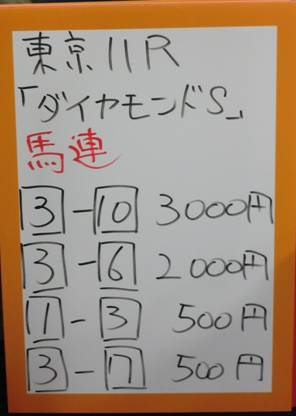 東京11R
「ダイヤモンドS」
馬連
3-10 3000円
3-6 2000円
11-3 500円
3-17 500円